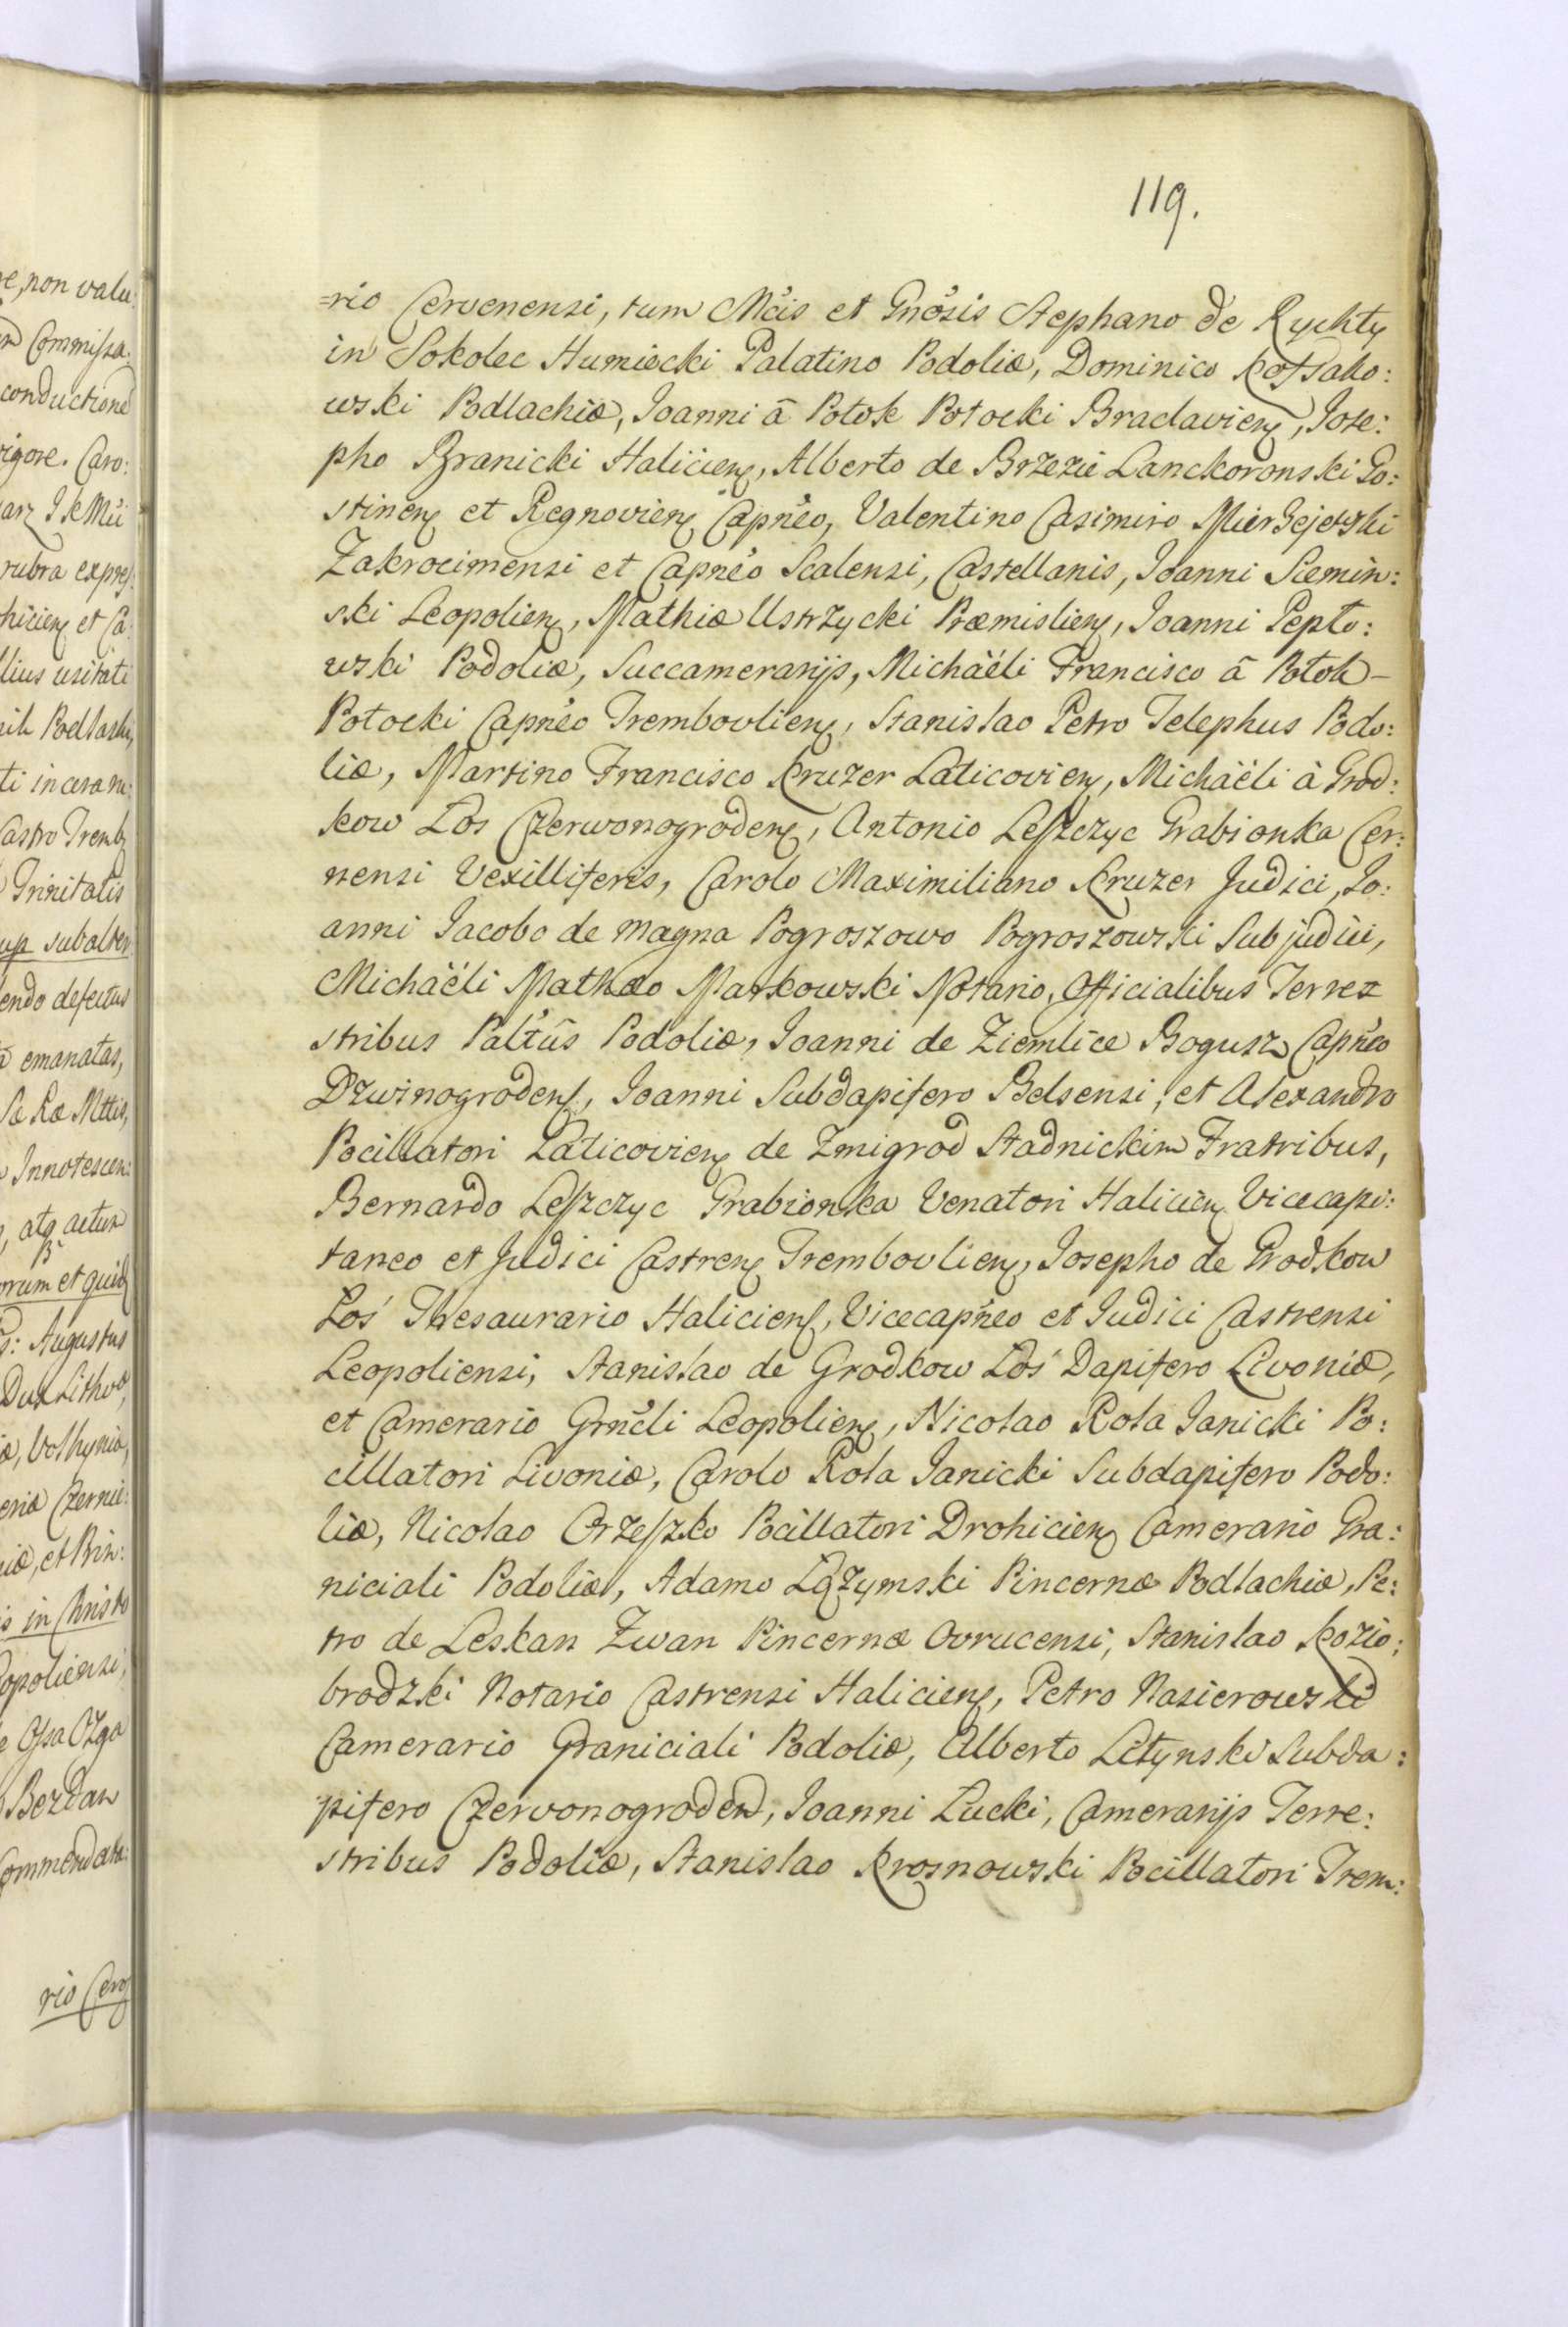 e, non valu:
Commissa:
conductione
rigore. Caro:
arz J K Mci
rubra expres:
hicien et Ca:
llius usitati
Podlaski,
ti in cera ru:
Castro Tremb
Trinitatis
up subalter
endo defectus
emanatas,
Sæ Ræ Mttis,
Innotescen:
atq actum
orum et quid
Augustus
Dux Lithvæ,
æ, Volhyniæ,
eriæ Czernie:
iæ, et Prin:
is in Christo
opoliensi,
e Ossa Ozga
Bezdan
Commendata:
rio Cerv
119.
=rio Cervenensi, tum Mcis et Gnosis Stephano de Rychty
in Sokolec Humiecki Palatino Podoliæ, Dominico Kossako:
wski Podlachiæ, Joanni â Potok Potocki Braclavien, Jose:
pho Branicki Halicien, Alberto de Brzezie Lanckoronski Go:
stinen et Regnovien Capneo, Valentino Casimiro Mierzejewski
Zakrocimensi et Capneo Scalensi, Castellanis, Joanni Siemin:
ski Leopolien, Mathiæ Ustrzycki Præmislien, Joanni Pepło:
wski Podoliæ, Succamerarijs, Michäéli Francisco â Potok –
Potocki Capneo Trembovlien, Stanislao Petro Telephus Podo:
liæ, Martino Francisco Kruzer Laticovien, Michäéli à Grod:
kow Łos Czerwonogroden, Antonio Leszczyc Grabionka Cer:
nensi Vexilliferis, Carolo Maximiliano Kruzer Judici, Jo:
anni Jacobo de magna Pogroszowo Pogroszowski Subjudici,
Michäéli Mathæo Markowski Notario, Officialibus Terre=
stribus Paltûs Podoliæ, Joanni de Ziemlice Bogusz Capneo
Dzwinogroden, Joanni Subdapifero Belsensi, et Alexandro
Pocillatori Laticovien de Zmigrod Stadnickim Fratribus,
Bernardo Leszczyc Grabionka Venatori Halicien Vicecapi:
taneo et Judici Castren Trembovlien, Josepho de Grodkow
Łoś Thesaurario Halicien, Vicecapneo et Judici Castrensi
Leopoliensi, Stanislao de Grodkow Łoś Dapifero Livoniæ,
et Camerario Grncli Leopolien, Nicolao Rola Janicki Po:
cillatori Livoniæ, Carolo Rola Janicki Subdapifero Podo:
liæ, Nicolao Orzeszko Pocillatori Drohicien Camerario Gra:
niciali Podoliæ, Adamo Łązynski Pincernæ Podlachiæ, Pe:
tro de Leskan Zwan Pincernæ Ovrucensi, Stanislao Kozio:
brodzki Notario Castrensi Halicien, Petro Nasierowski
Camerario Graniciali Podoliæ, Alberto Letynski Subda:
pifero Czervonogroden, Joanni Łucki, Camerarijs Terre:
stribus Podoliæ, Stanislao Krosnowski Pocillatori Trem: